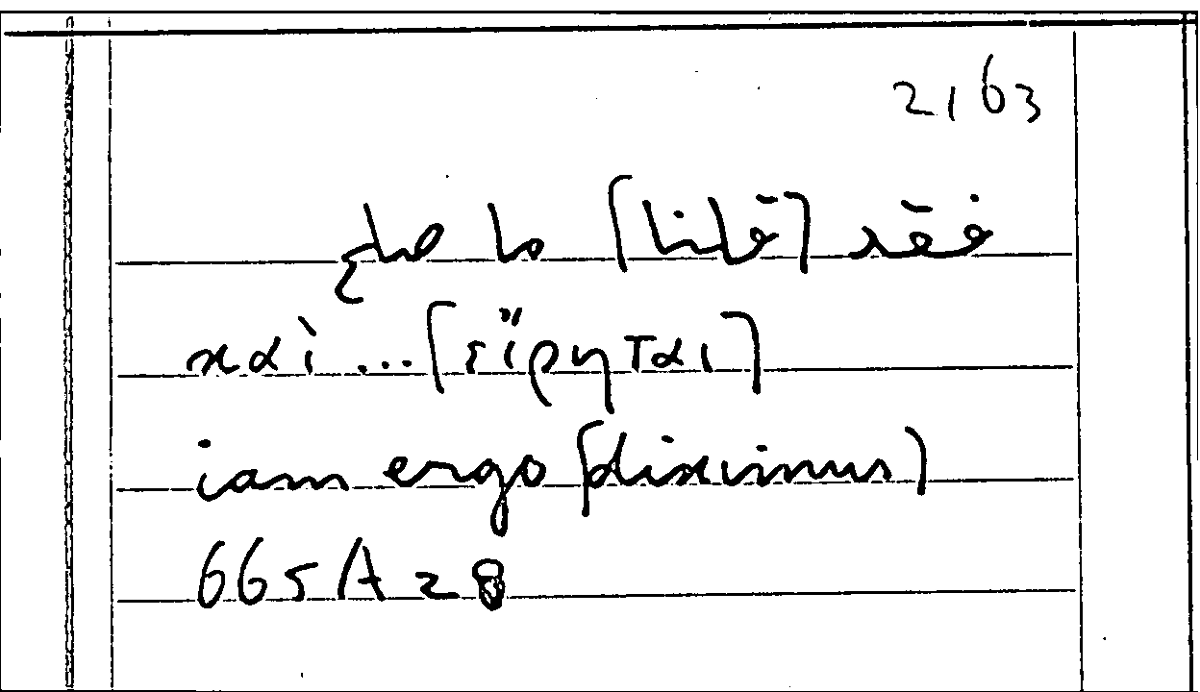 2,63
فقد [قلنا] ما
καὶ ... [εἴρηται]
iam ergo [diximus]
665A28